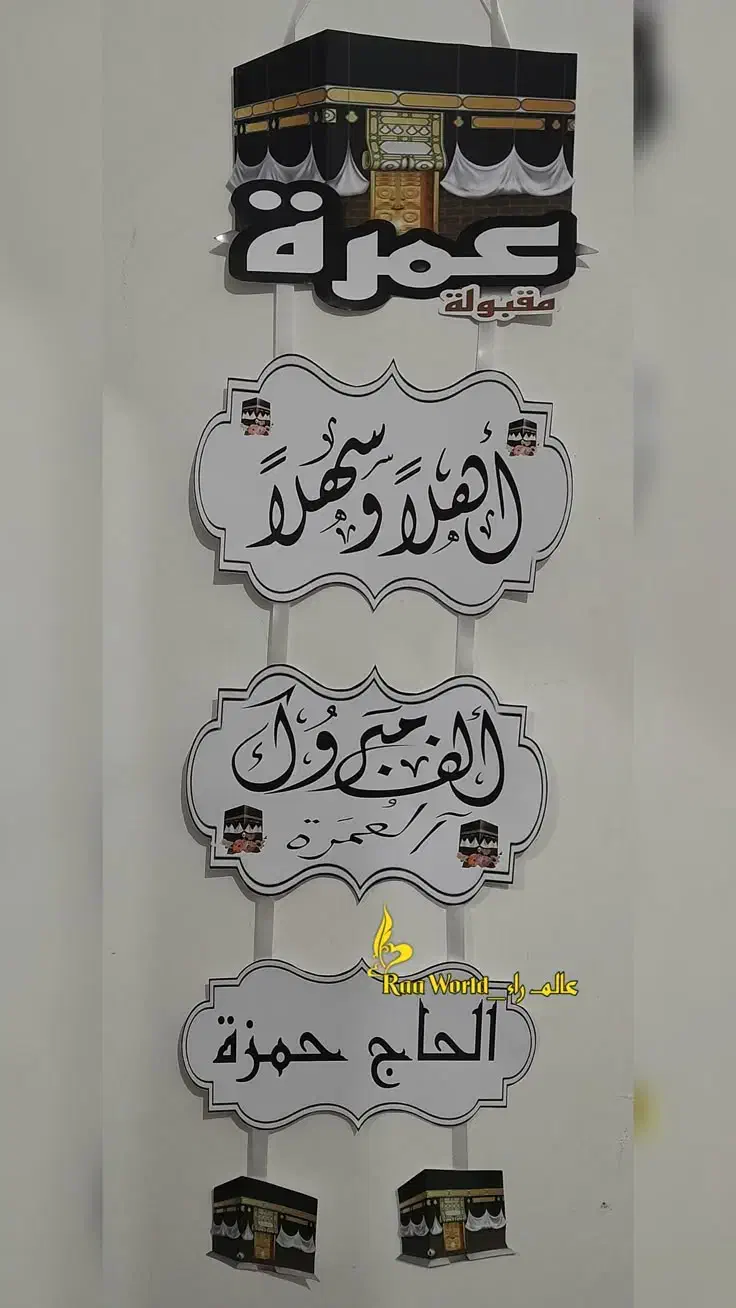 عمرة
مقبولة
أهلاً وسهلاً
ألف مبروك
العُمرَة
Raa World_عالم راء
الحاج حمزة